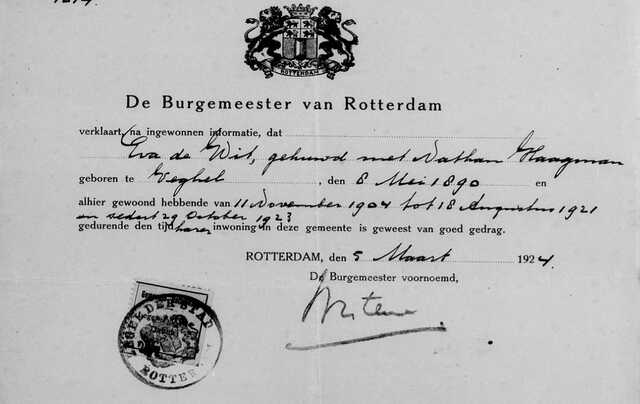 ROTTERDAM
De Burgemeester van Rotterdam
verklaart, na ingewonnen informatie, dat
Eva de Wit, gehuwd met Nathan Haagman
geboren te Veghel, den 8 Mei 1890 en
alhier gewoond hebbende van 11 November 1904 tot 18 Augustus 1921
en sedert 29 October 1923
gedurende den tijd harer inwoning in deze gemeente is geweest van goed gedrag.
ROTTERDAM, den 5 Maart 1924.
De Burgemeester voornoemd,
DER STAD
ROTTER